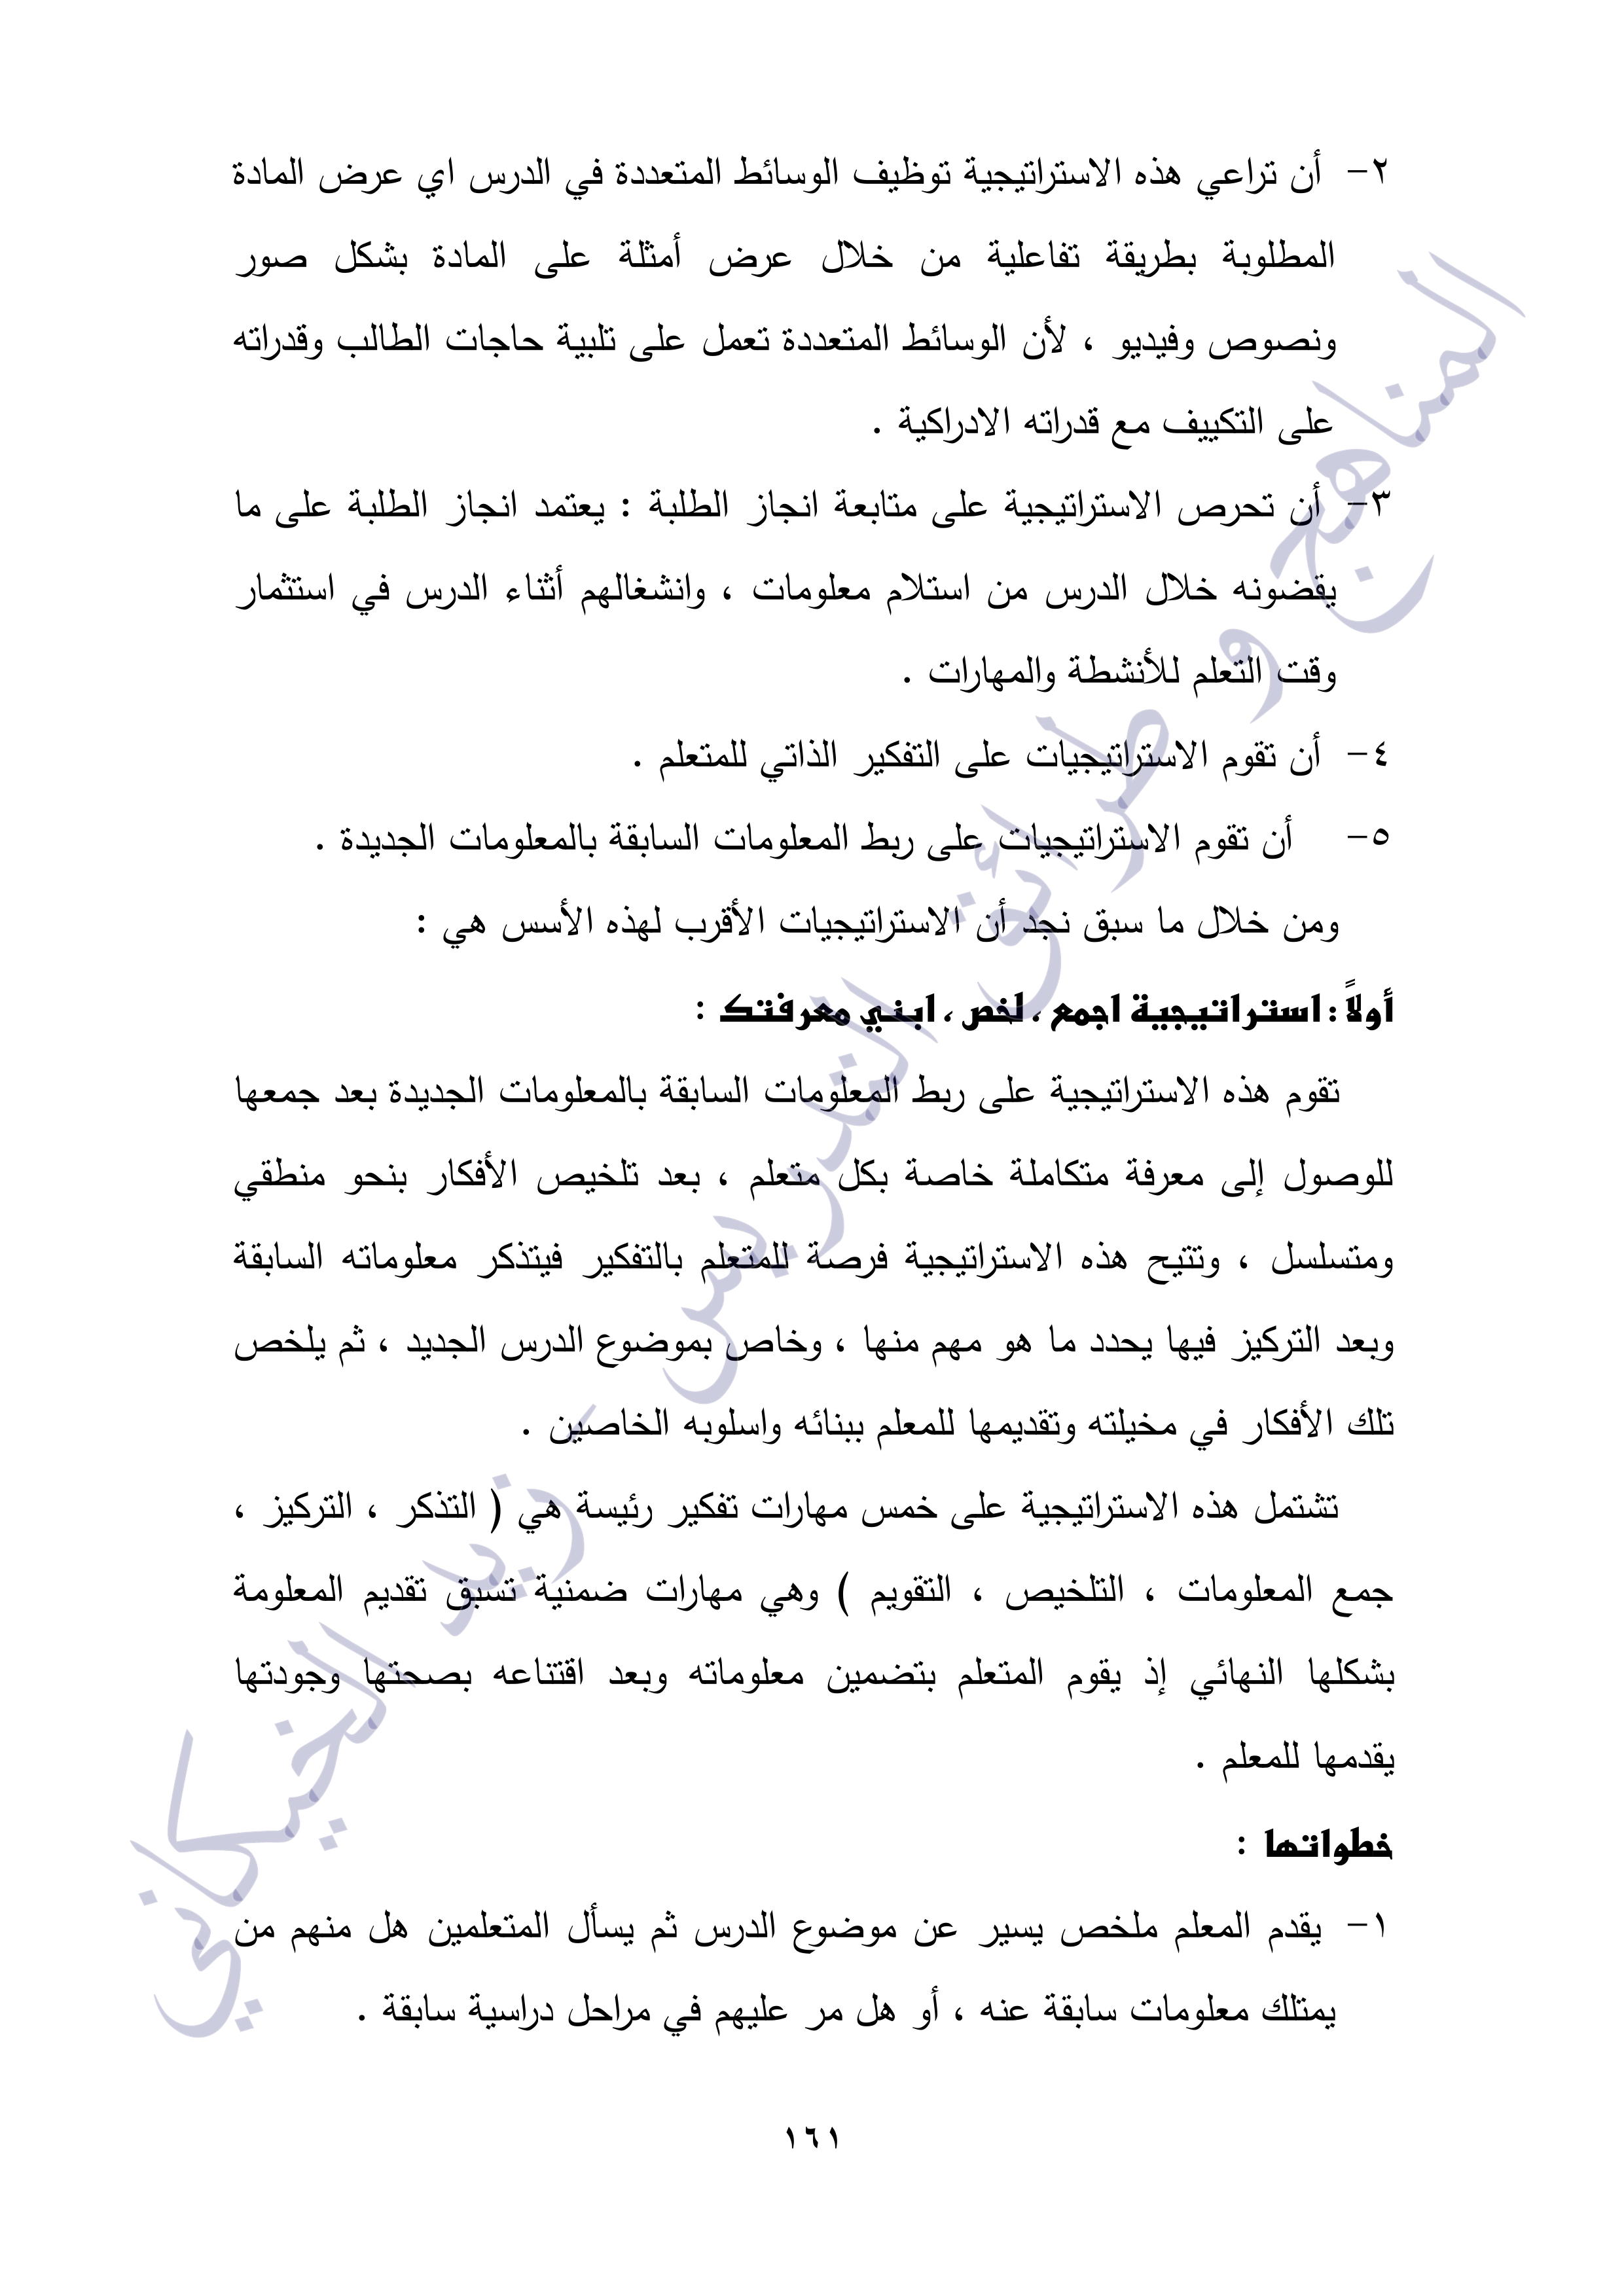 ٢- أن تراعي هذه الاستراتيجية توظيف الوسائط المتعددة في الدرس اي عرض المادة
المطلوبة بطريقة تفاعلية من خلال عرض أمثلة على المادة بشكل صور
ونصوص وفيديو ، لأن الوسائط المتعددة تعمل على تلبية حاجات الطالب وقدراته
على التكييف مع قدراته الادراكية .
٣- أن تحرص الاستراتيجية على متابعة انجاز الطلبة : يعتمد انجاز الطلبة على ما
يقضونه خلال الدرس من استلام معلومات ، وانشغالهم أثناء الدرس في استثمار
وقت التعلم للأنشطة والمهارات .
٤- أن تقوم الاستراتيجيات على التفكير الذاتي للمتعلم .
٥- أن تقوم الاستراتيجيات على ربط المعلومات السابقة بالمعلومات الجديدة .
ومن خلال ما سبق نجد أن الاستراتيجيات الأقرب لهذه الأسس هي :
أولاً : استراتيجية اجمع ، لخص ، ابني معرفتك :
تقوم هذه الاستراتيجية على ربط المعلومات السابقة بالمعلومات الجديدة بعد جمعها
للوصول إلى معرفة متكاملة خاصة بكل متعلم ، بعد تلخيص الأفكار بنحو منطقي
ومتسلسل ، وتتيح هذه الاستراتيجية فرصة للمتعلم بالتفكير فيتذكر معلوماته السابقة
وبعد التركيز فيها يحدد ما هو مهم منها ، وخاص بموضوع الدرس الجديد ، ثم يلخص
تلك الأفكار في مخيلته وتقديمها للمعلم ببنائه واسلوبه الخاصين .
تشتمل هذه الاستراتيجية على خمس مهارات تفكير رئيسة هي ( التذكر ، التركيز ،
جمع المعلومات ، التلخيص ، التقويم ) وهي مهارات ضمنية تسبق تقديم المعلومة
بشكلها النهائي إذ يقوم المتعلم بتضمين معلوماته وبعد اقتناعه بصحتها وجودتها
يقدمها للمعلم .
خطواتها :
١- يقدم المعلم ملخص يسير عن موضوع الدرس ثم يسأل المتعلمين هل منهم من
يمتلك معلومات سابقة عنه ، أو هل مر عليهم في مراحل دراسية سابقة .
١٦١
المناهج و طرائق التدريس - زيد الخيكاني